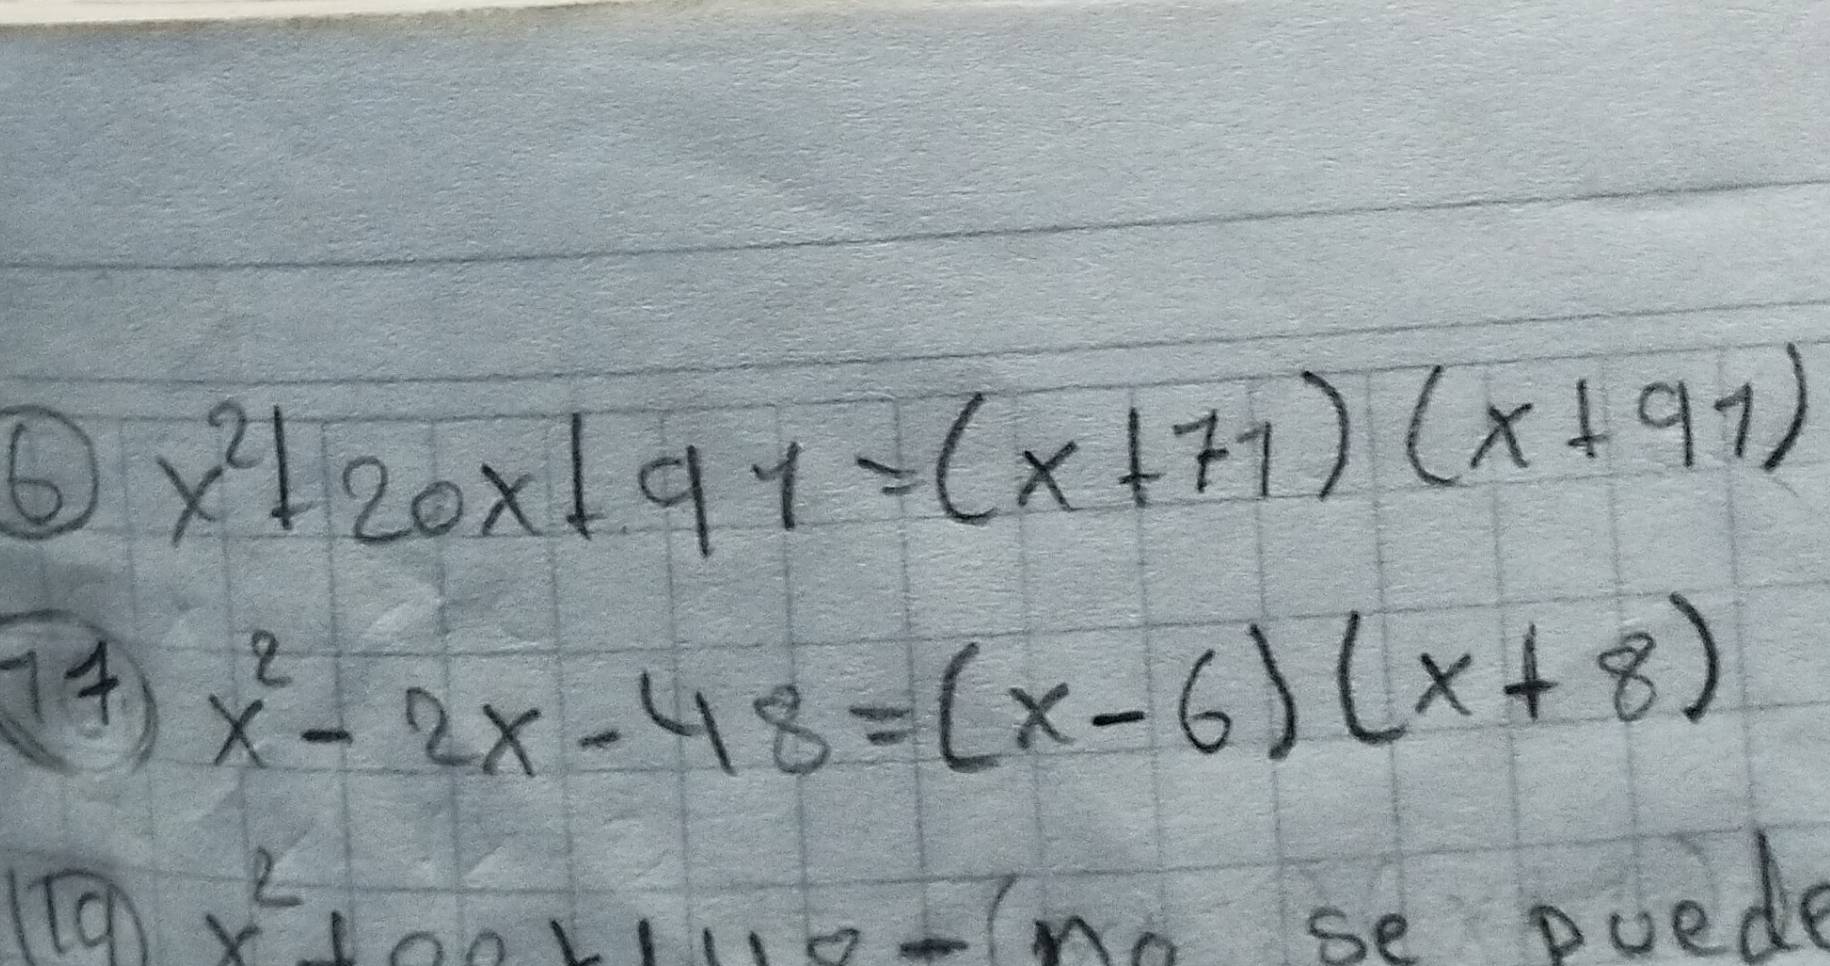 ⑥ x²+20x+91=(x+71)(x+91)
⑰ x²-2x-48=(x-6)(x+8)
⑲ x² (no se puede